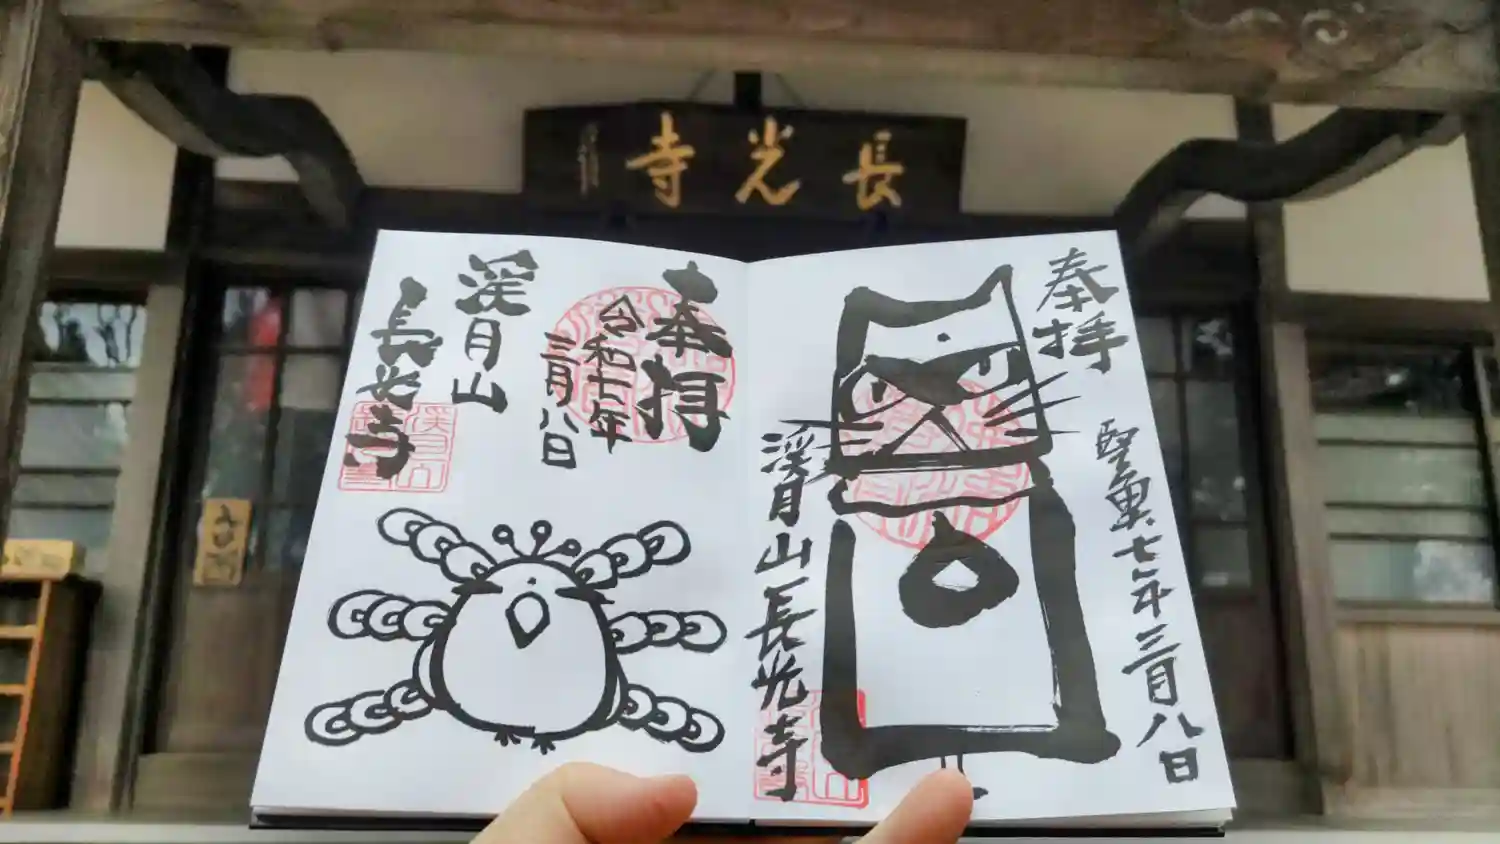 長光寺
奉拝
七年三月八日
渓月山長光寺
奉拝
令和七年
三月八日
渓月山
長光寺